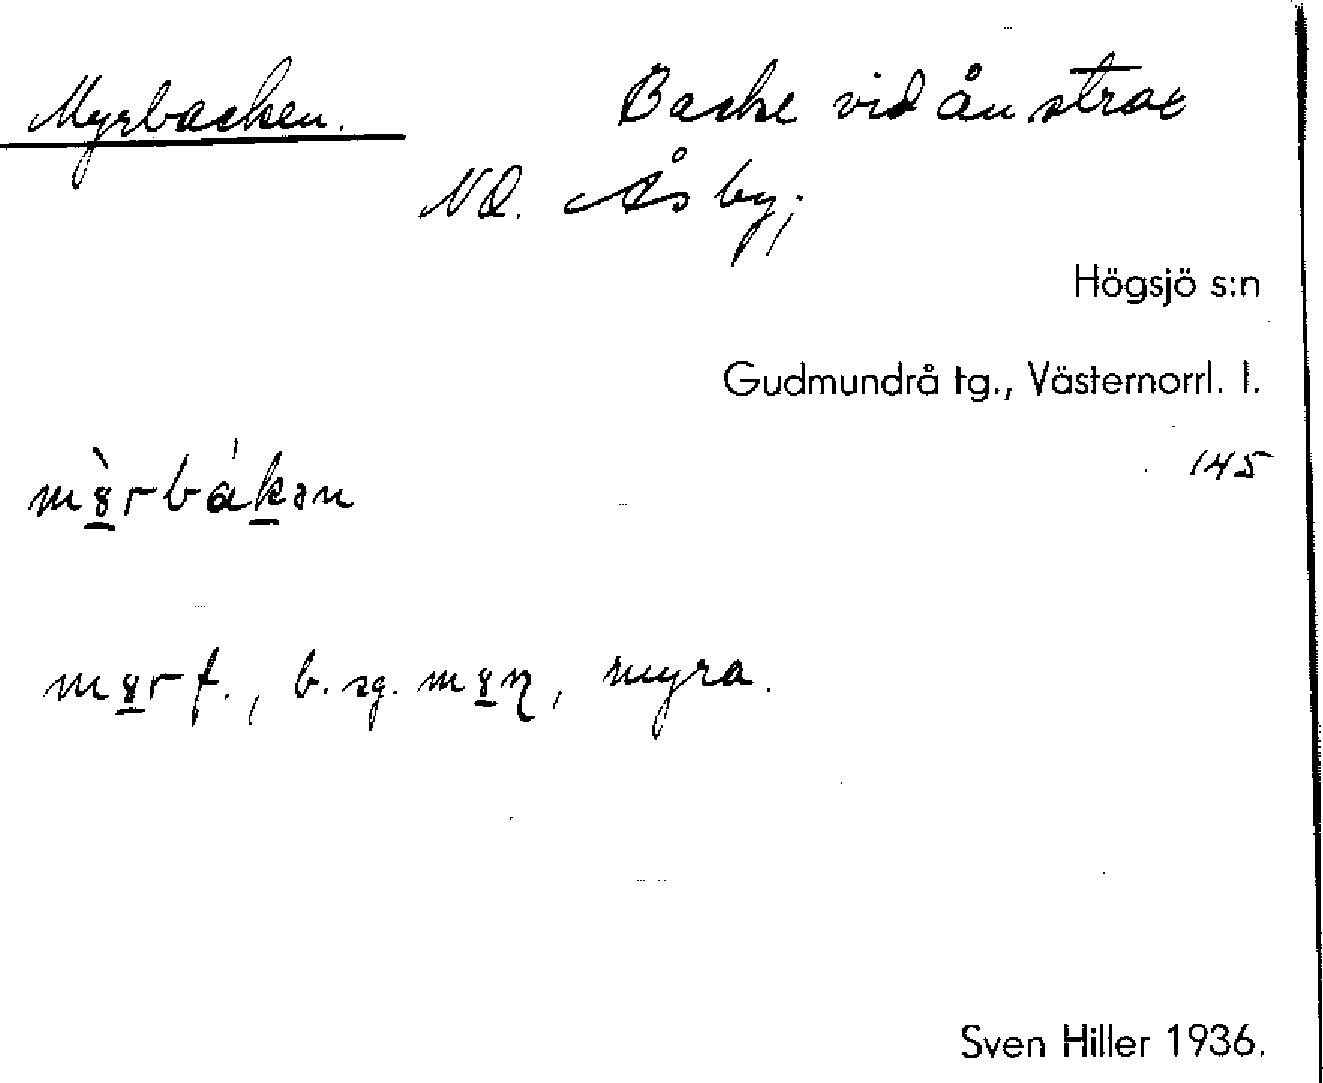 Myrbacken. Backe vid ån strax
NO. Ås by;
Högsjö s:n
Gudmundrå tg., Västernorrl. l.
145
f., b. sg. myra.
Sven Hiller 1936.